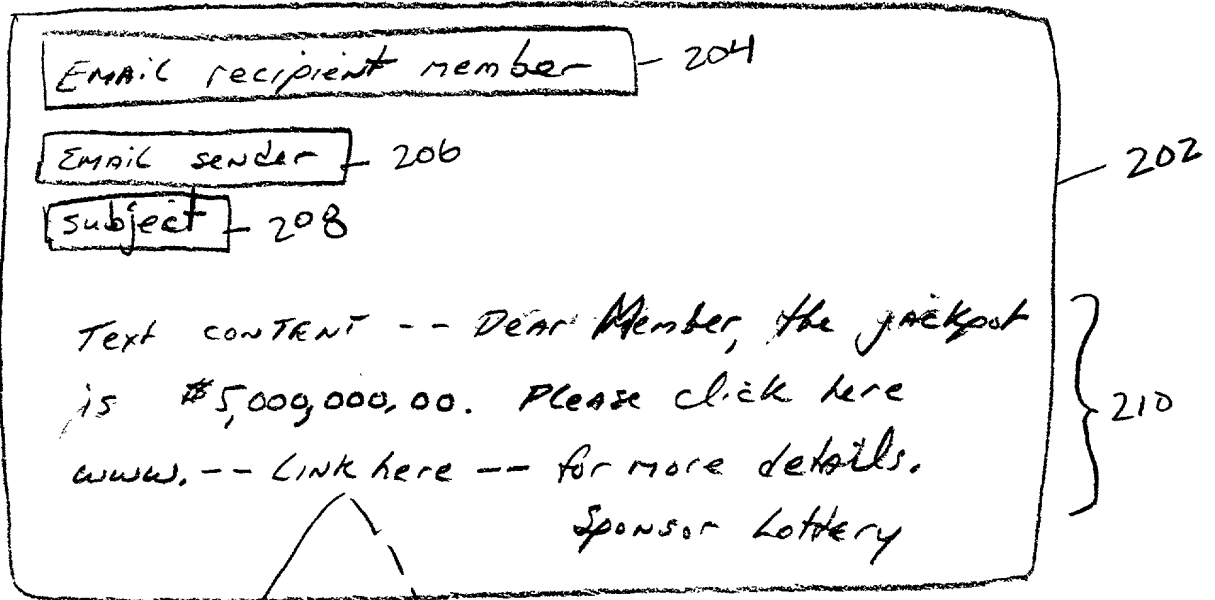 EMAIL recipient member 204
EMAIL sender 206
202
subject 208
Text CONTENT -- Dear Member, the jackpot
is $5,000,000.00. Please click here
210
www. -- LINK here -- for more details.
Sponsor Lottery